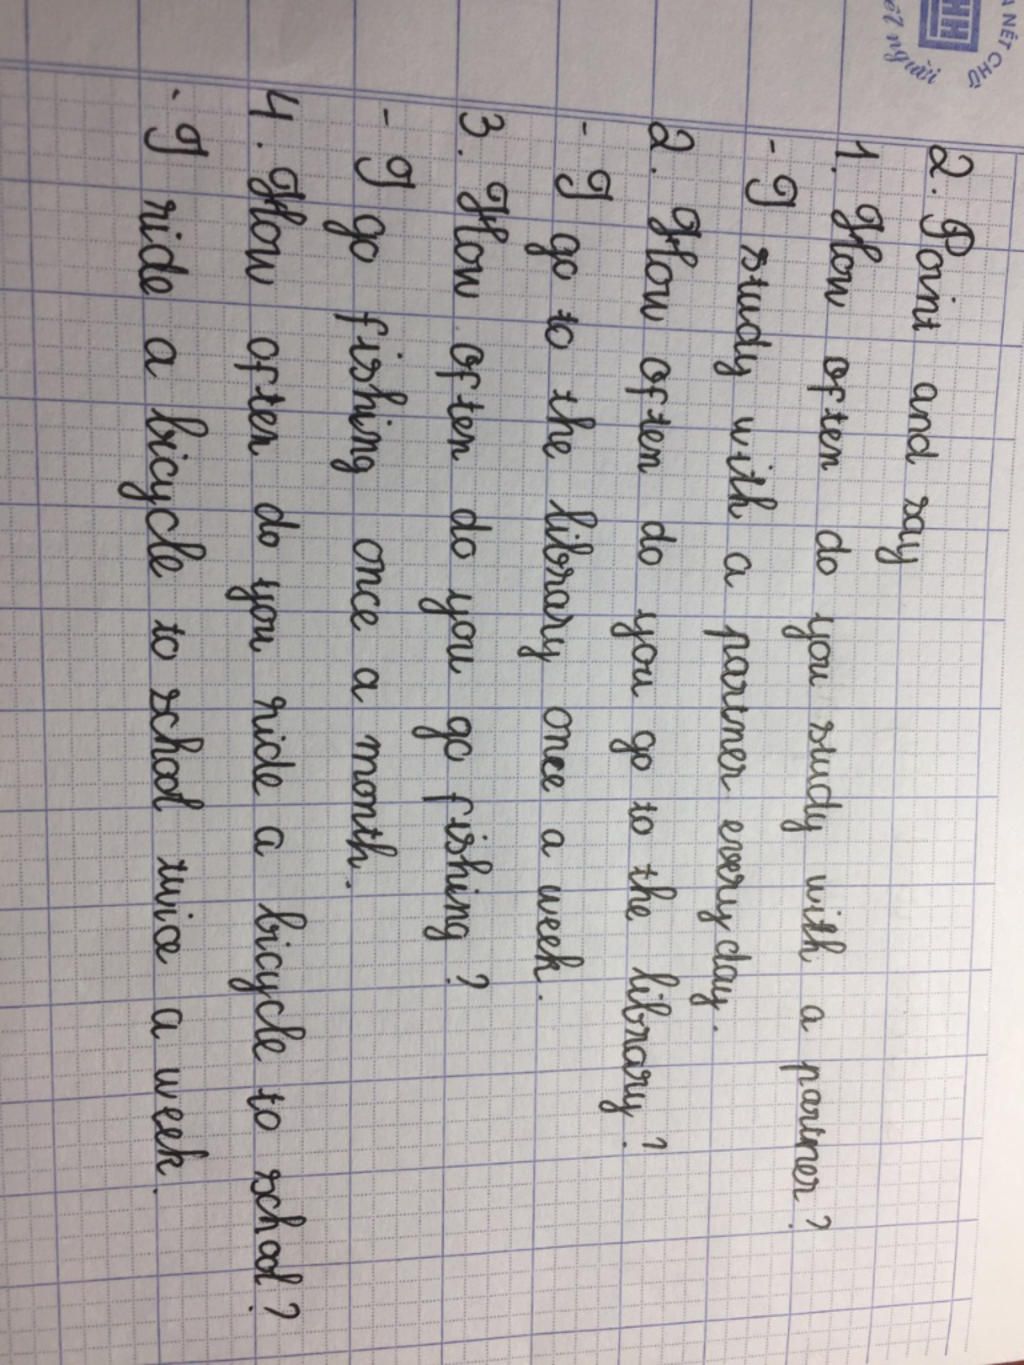 A NÉT CHỮ
ết người
2. Point and say
1. How often do you study with a partner?
- I study with a partner every day.
2. How often do you go to the library?
- I go to the library once a week.
3. How often do you go fishing?
- I go fishing once a month.
4. How often do you ride a bicycle to school?
- I ride a bicycle to school twice a week.